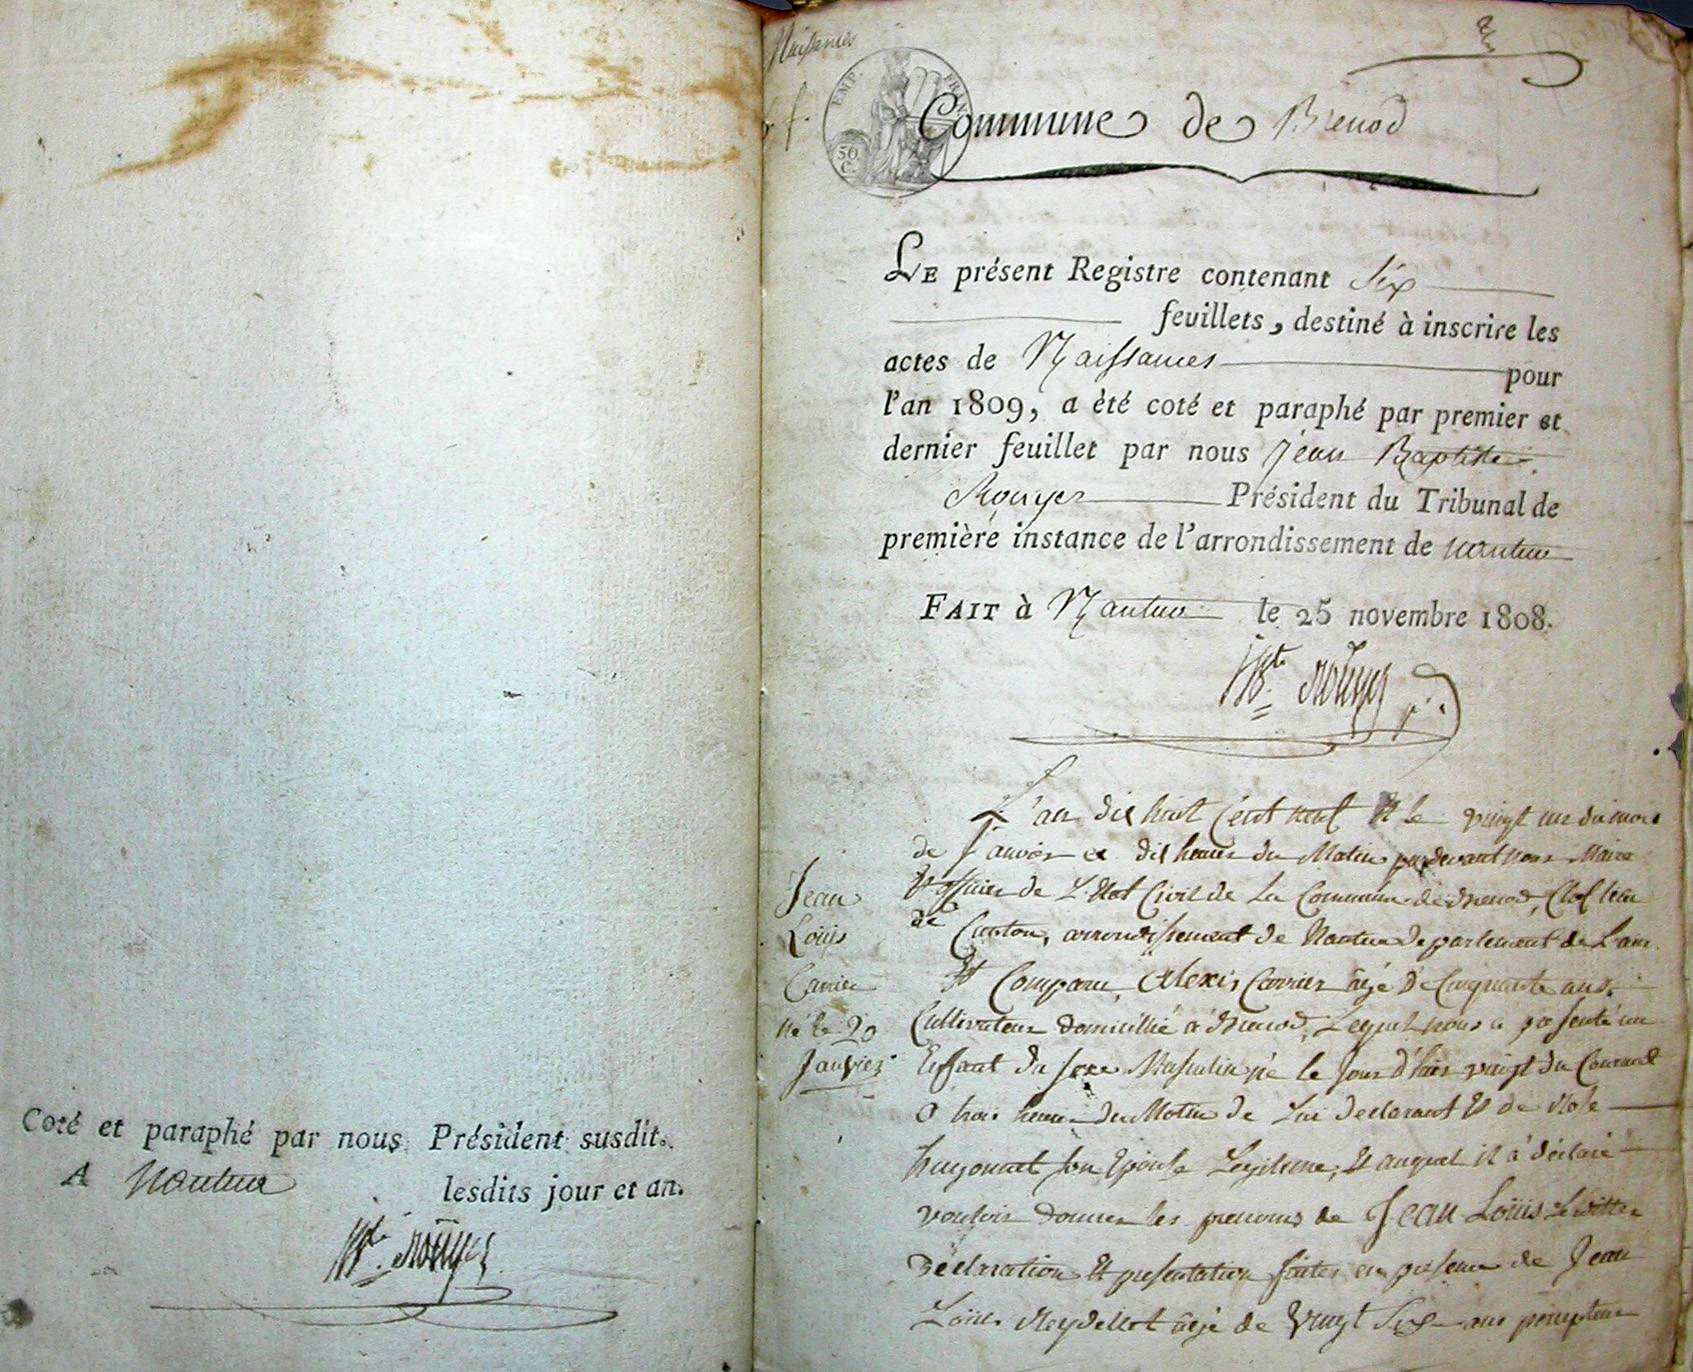 Coté et paraphé par nous Président susdit.
A Nantua lesdits jour et an.
Jbte Rouyer
Naissances
EMP. FRAN
50 C.
Commune de Brenod
LE présent Registre contenant Six
feuillets, destiné à inscrire les
actes de Naissances pour
l'an 1809, a èté coté et paraphé par premier et
dernier feuillet par nous Jean Baptiste
Rouyer Président du Tribunal de
première instance de l'arrondissement de nantua
FAIT à Nantua le 25 novembre 1808.
Jbte Rouyer
Jean
Louis
Carrier
né le 20
Janvier
L'an dix huit Cent neuf Et le vingt un du mois
de Janvier a dix heures du Matin pardevant nous Maire
Et officier de L'Etat Civil de La Commune de Brenod, Chef lieu
de Canton, arrondissement de Nantua departement de L'ain
Et Comparu, Alexis Carrier âgé De Cinquante ans,
Cultivateur domicillié a Brenod, Lequel nous a presenté un
Enfant du sexe Masculin né le Jour d'hier vingt du Courant
a trois heures du Matin de Lui declarant Et de
son Epouse Legitime, Et auquel il a déclaré
vouloir donner les prenoms de Jean Loüis Lesdittes
Déclaration Et presentation faites en presence de Jean
Loüis âgé de Vingt Six ans